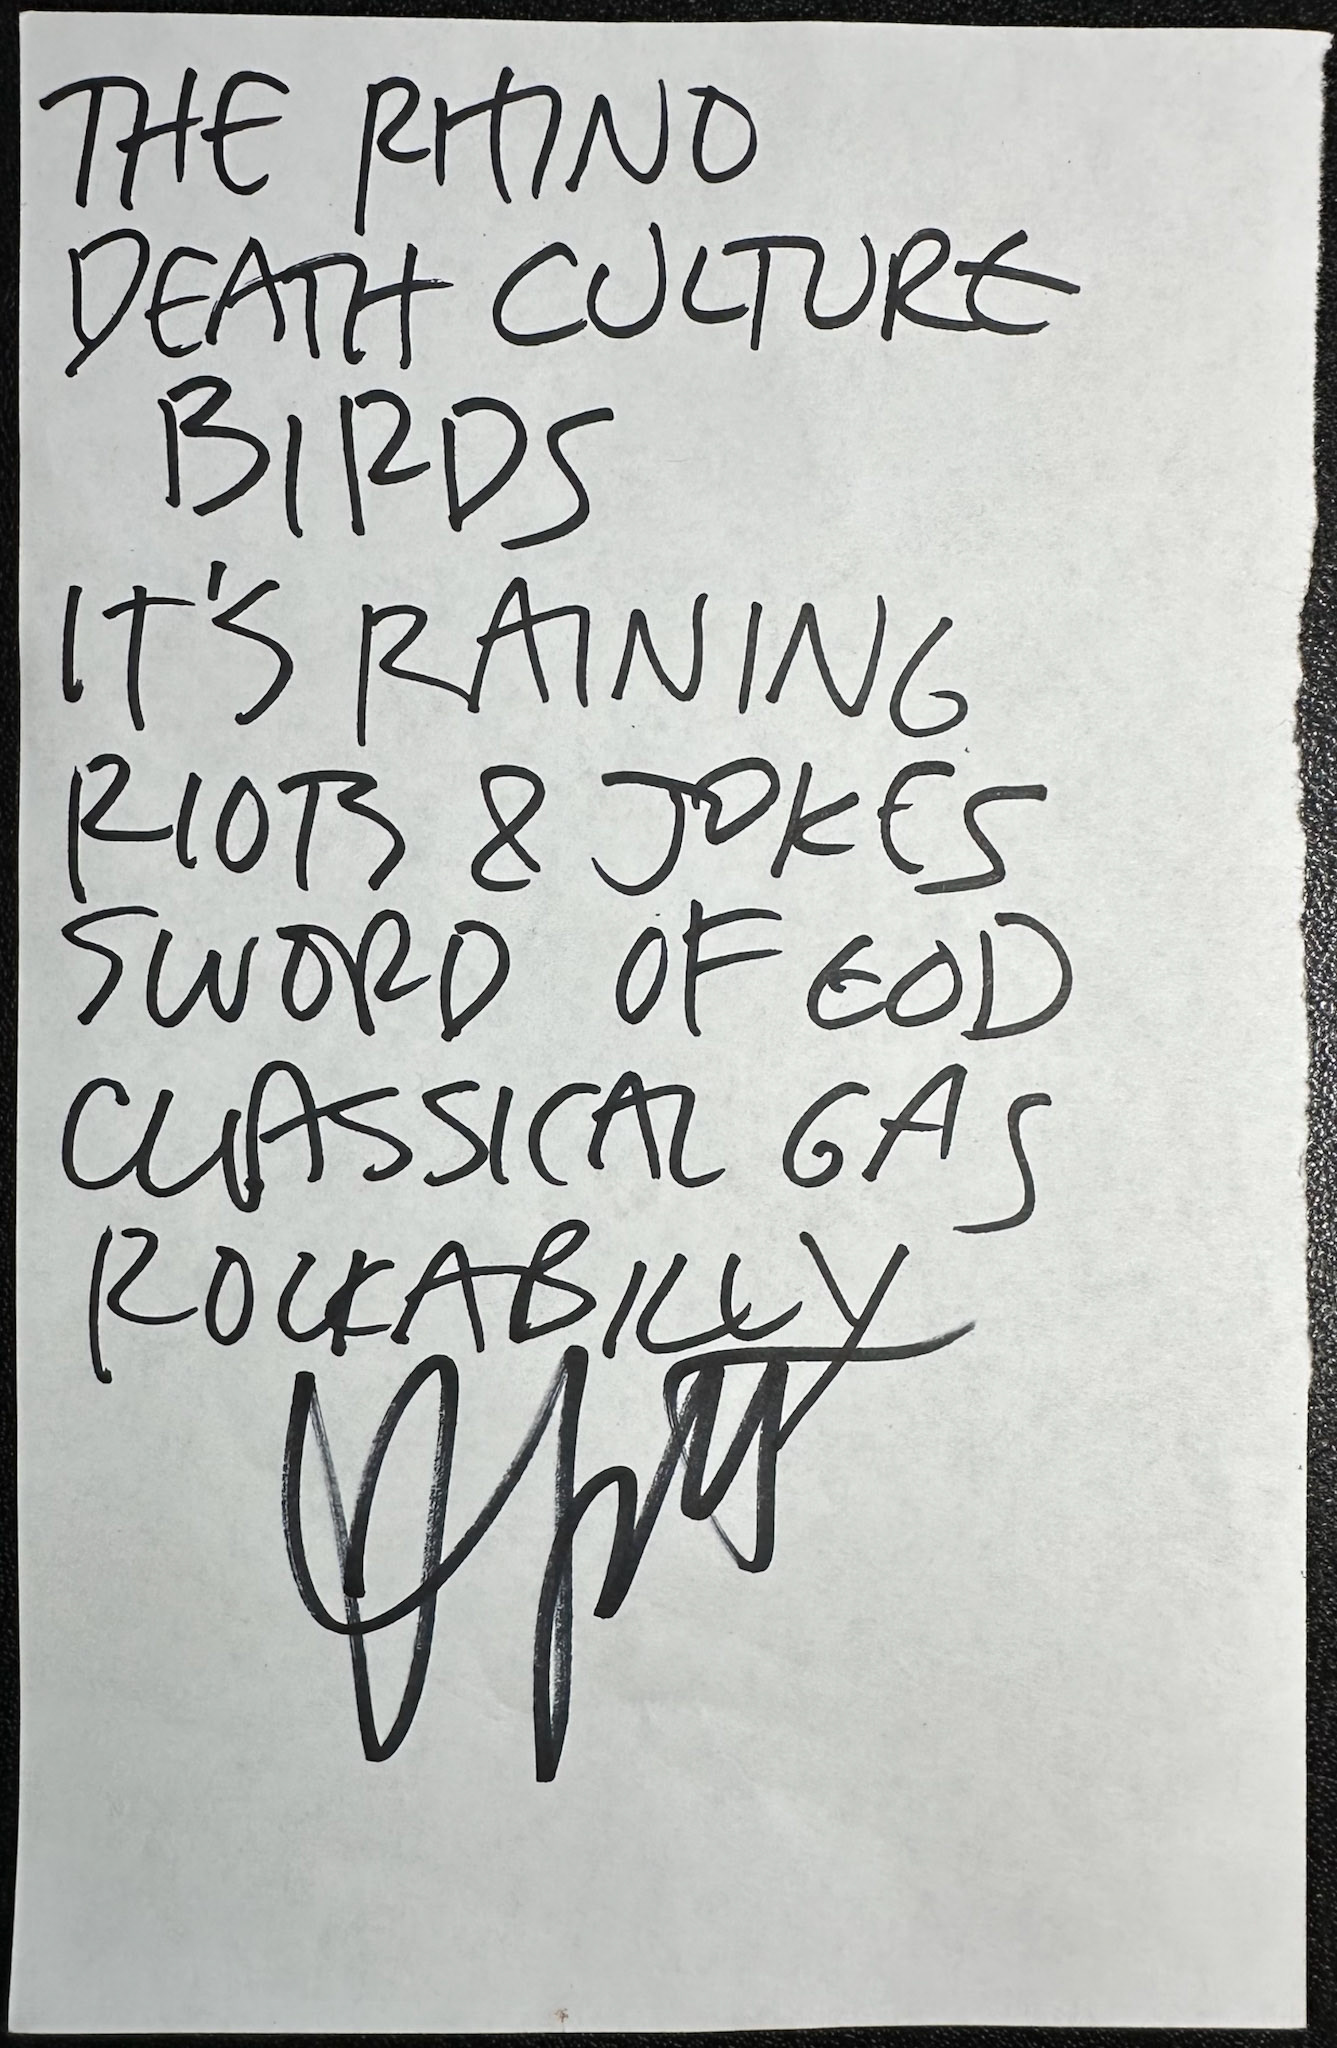 THE RHINO
DEATH CULTURE
BIRDS
IT'S RAINING
RIOTS & JOKES
SWORD OF GOD
CLASSICAL GAS
ROCKABILLY